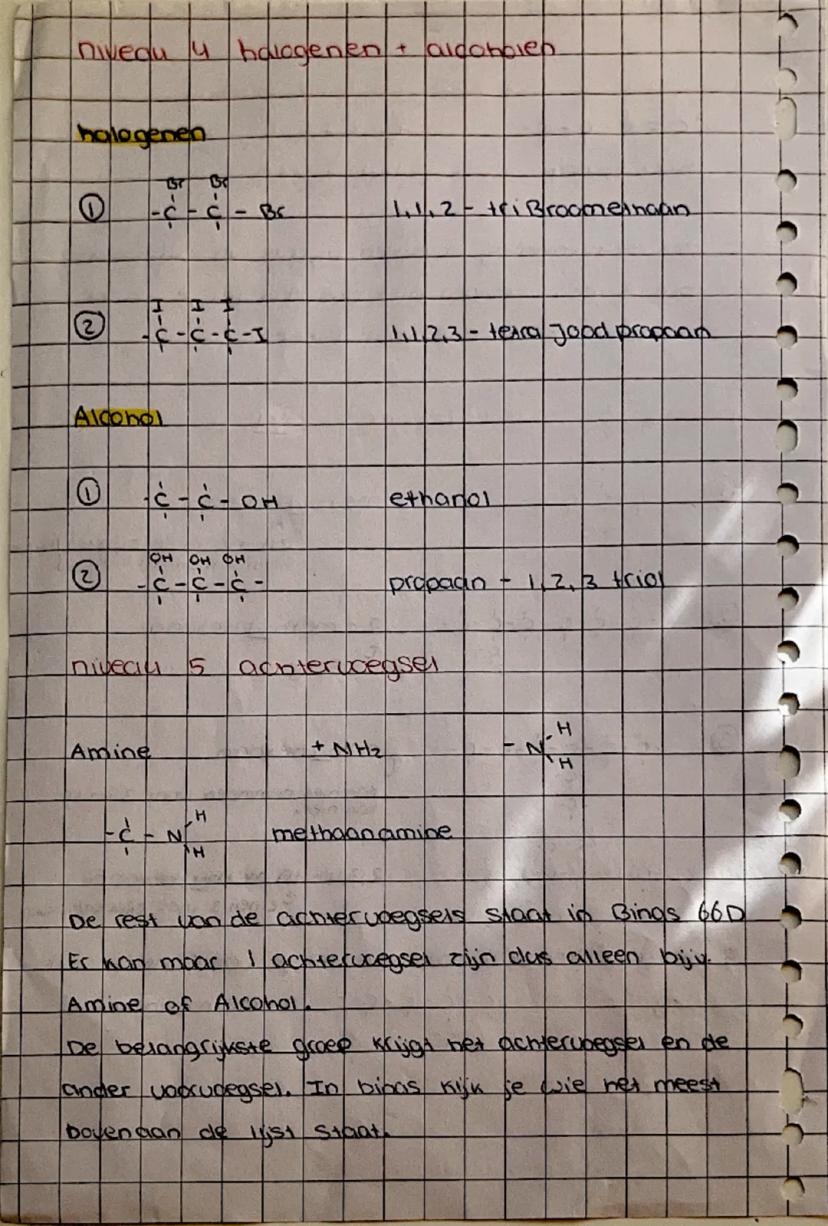 niveau 4 halogenen + alcoholen
halogenen
Br Br
① -C-C-Br 1,1,2-triBroomethaan
I I I
② -C-C-C-I 1,1,2,3-tetra Joodpropaan
Alcohol
① -C-C-OH ethanol
OH OH OH
② -C-C-C- propaan-1,2,3 triol
niveau 5 achtervoegsel
H
Amine +NH2 -N
H
H
-C-N methaanamine
H
De rest van de achtervoegsels staat in Binas 66D
Er kan maar 1 achtervoegsel zijn dus alleen bijv.
Amine of Alcohol.
De belangrijkste groep krijgt het achtervoegsel en de
ander voorvoegsel. In binas kijk je wie het meest
bovenaan de lijst staat.